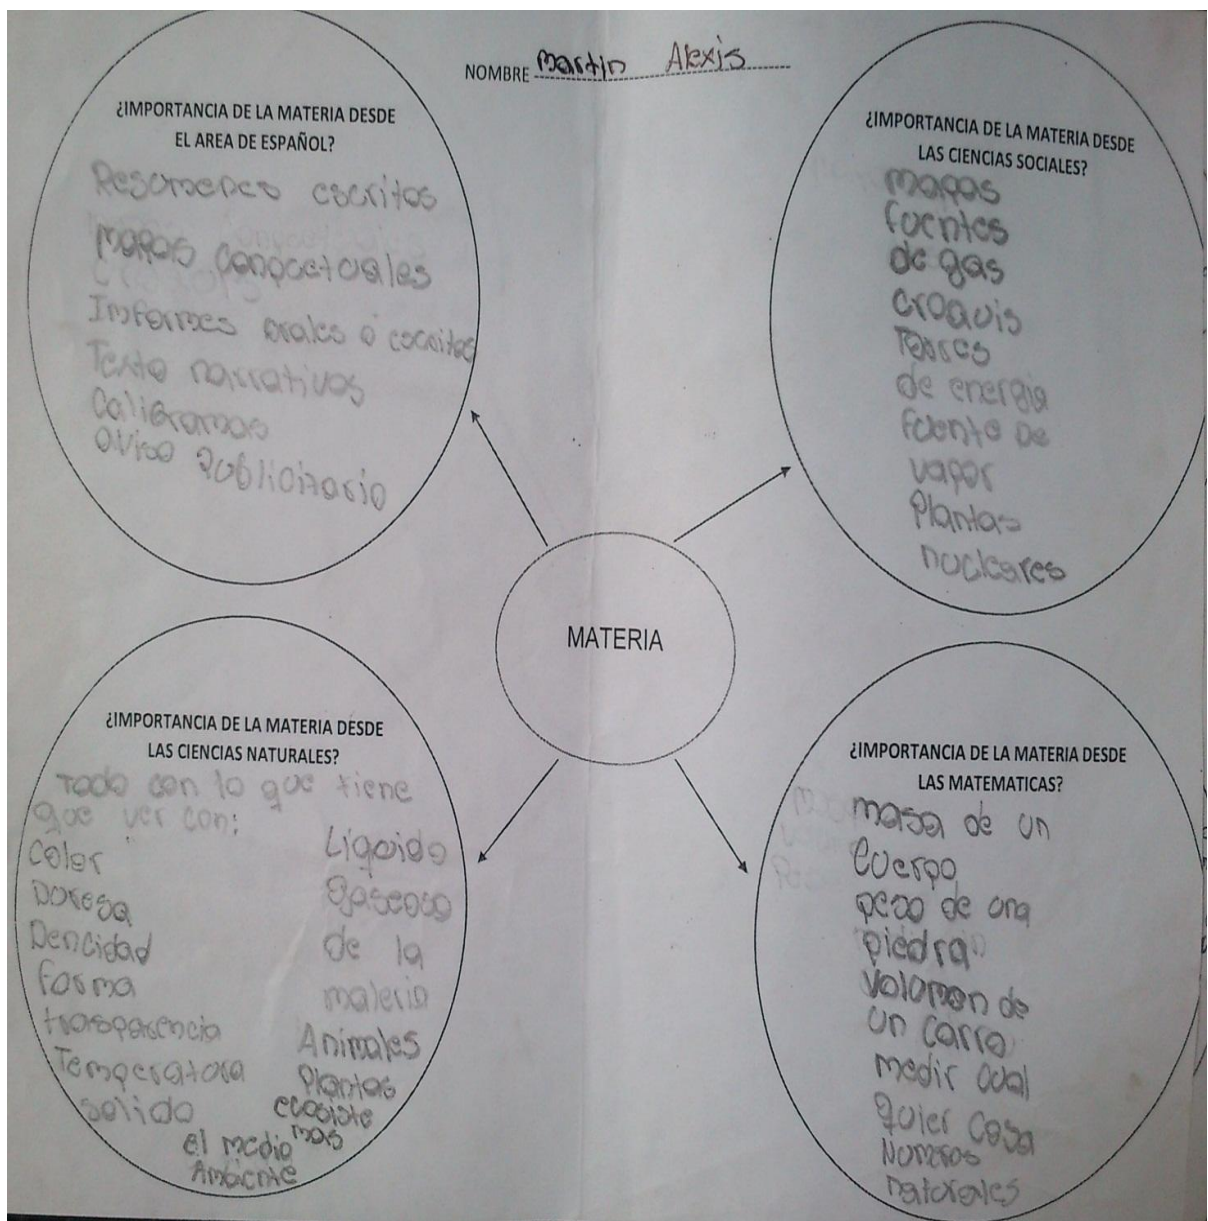 NOMBRE Martin Alexis
¿IMPORTANCIA DE LA MATERIA DESDE
EL AREA DE ESPAÑOL?
Resumenes escritos
mapas conceptuales
Informes orales o escritos
Texto narrativos
Caligramas
aviso publicitario
¿IMPORTANCIA DE LA MATERIA DESDE
LAS CIENCIAS SOCIALES?
mapas
fuentes
de gas
croquis
Torres
de energia
fuente de
vapor
Plantas
nucleares
MATERIA
¿IMPORTANCIA DE LA MATERIA DESDE
LAS CIENCIAS NATURALES?
Todo con lo que tiene
que ver con:
Color
Duresa
Dencidad
forma
trasparencia
Temperatura
solido
Liquido
gaseoso
de la
materia
Animales
Plantas
ecosiste
mas
el medio
Ambiente
¿IMPORTANCIA DE LA MATERIA DESDE
LAS MATEMATICAS?
masa de un
Cuerpo
peso de una
piedra
Volumen de
un carro
medir cual
quier cosa
Numeros
naturales